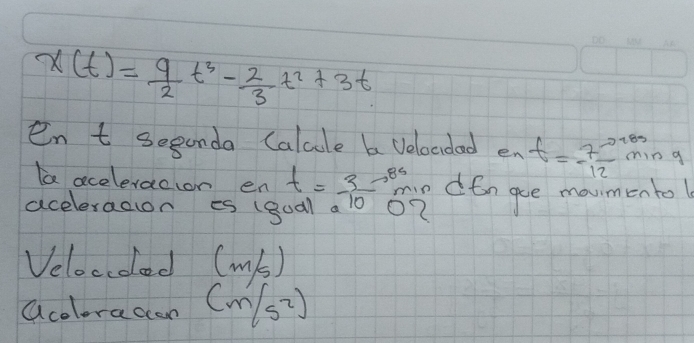 x(t) = 9/2 t³ - 2/3 t² + 3t
En t segunda Calcule la Velocidad en t = 7/12 min y
la aceleracion en t = 3/10 min ¿En que movimento l
aceleracion es igual a 0?
Velocidad (m/s)
aceleracion (m/s²)